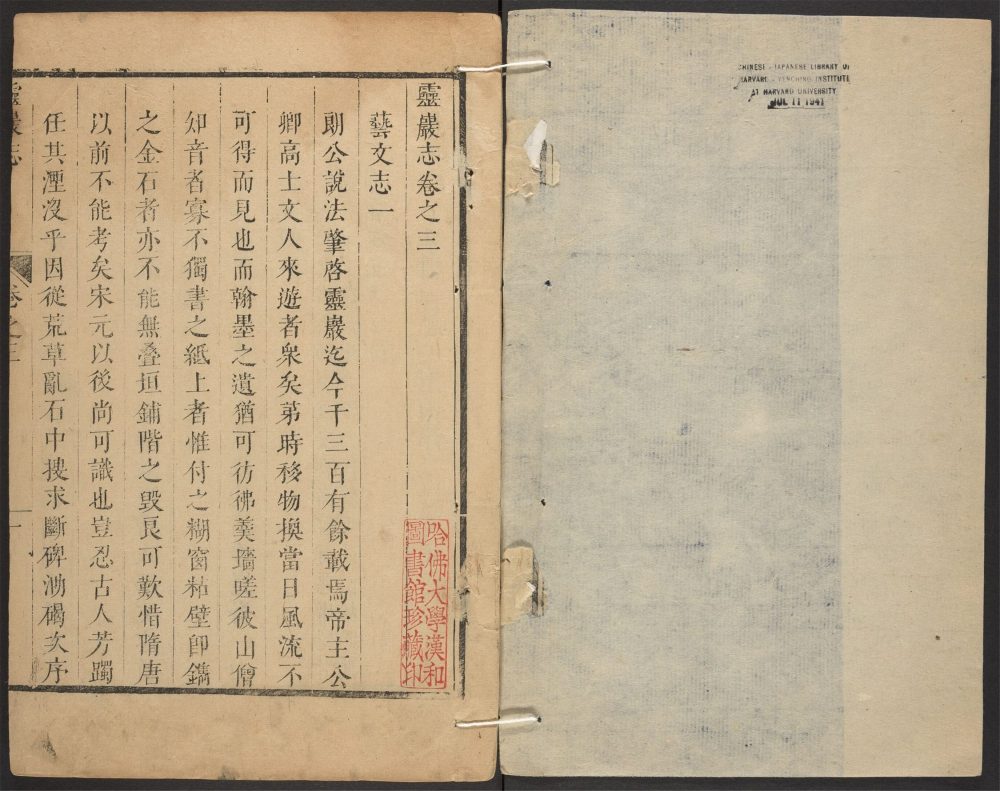 CHINESE-JAPANESE LIBRARY OF
HARVARD-YENCHING INSTITUTE
AT HARVARD UNIVERSITY
JUL 11 1941
靈巖志卷之三
哈佛大學漢和
圖書館珍藏印
藝文志一
朗公說法肇啓靈巖迄今千三百有餘載焉帝主公
卿高士文人來遊者衆矣第時移物換當日風流不
可得而見也而翰墨之遺猶可彷彿羹墻嗟彼山僧
知音者寡不獨書之紙上者惟付之糊窗粘壁卽鐫
之金石者亦不能無叠垣鋪階之毀良可歎惜隋唐
以前不能考矣宋元以後尚可識也豈忍古人芳躅
任其湮沒乎因從荒草亂石中搜求斷碑泐碣次序
靈巖志
卷之三
一